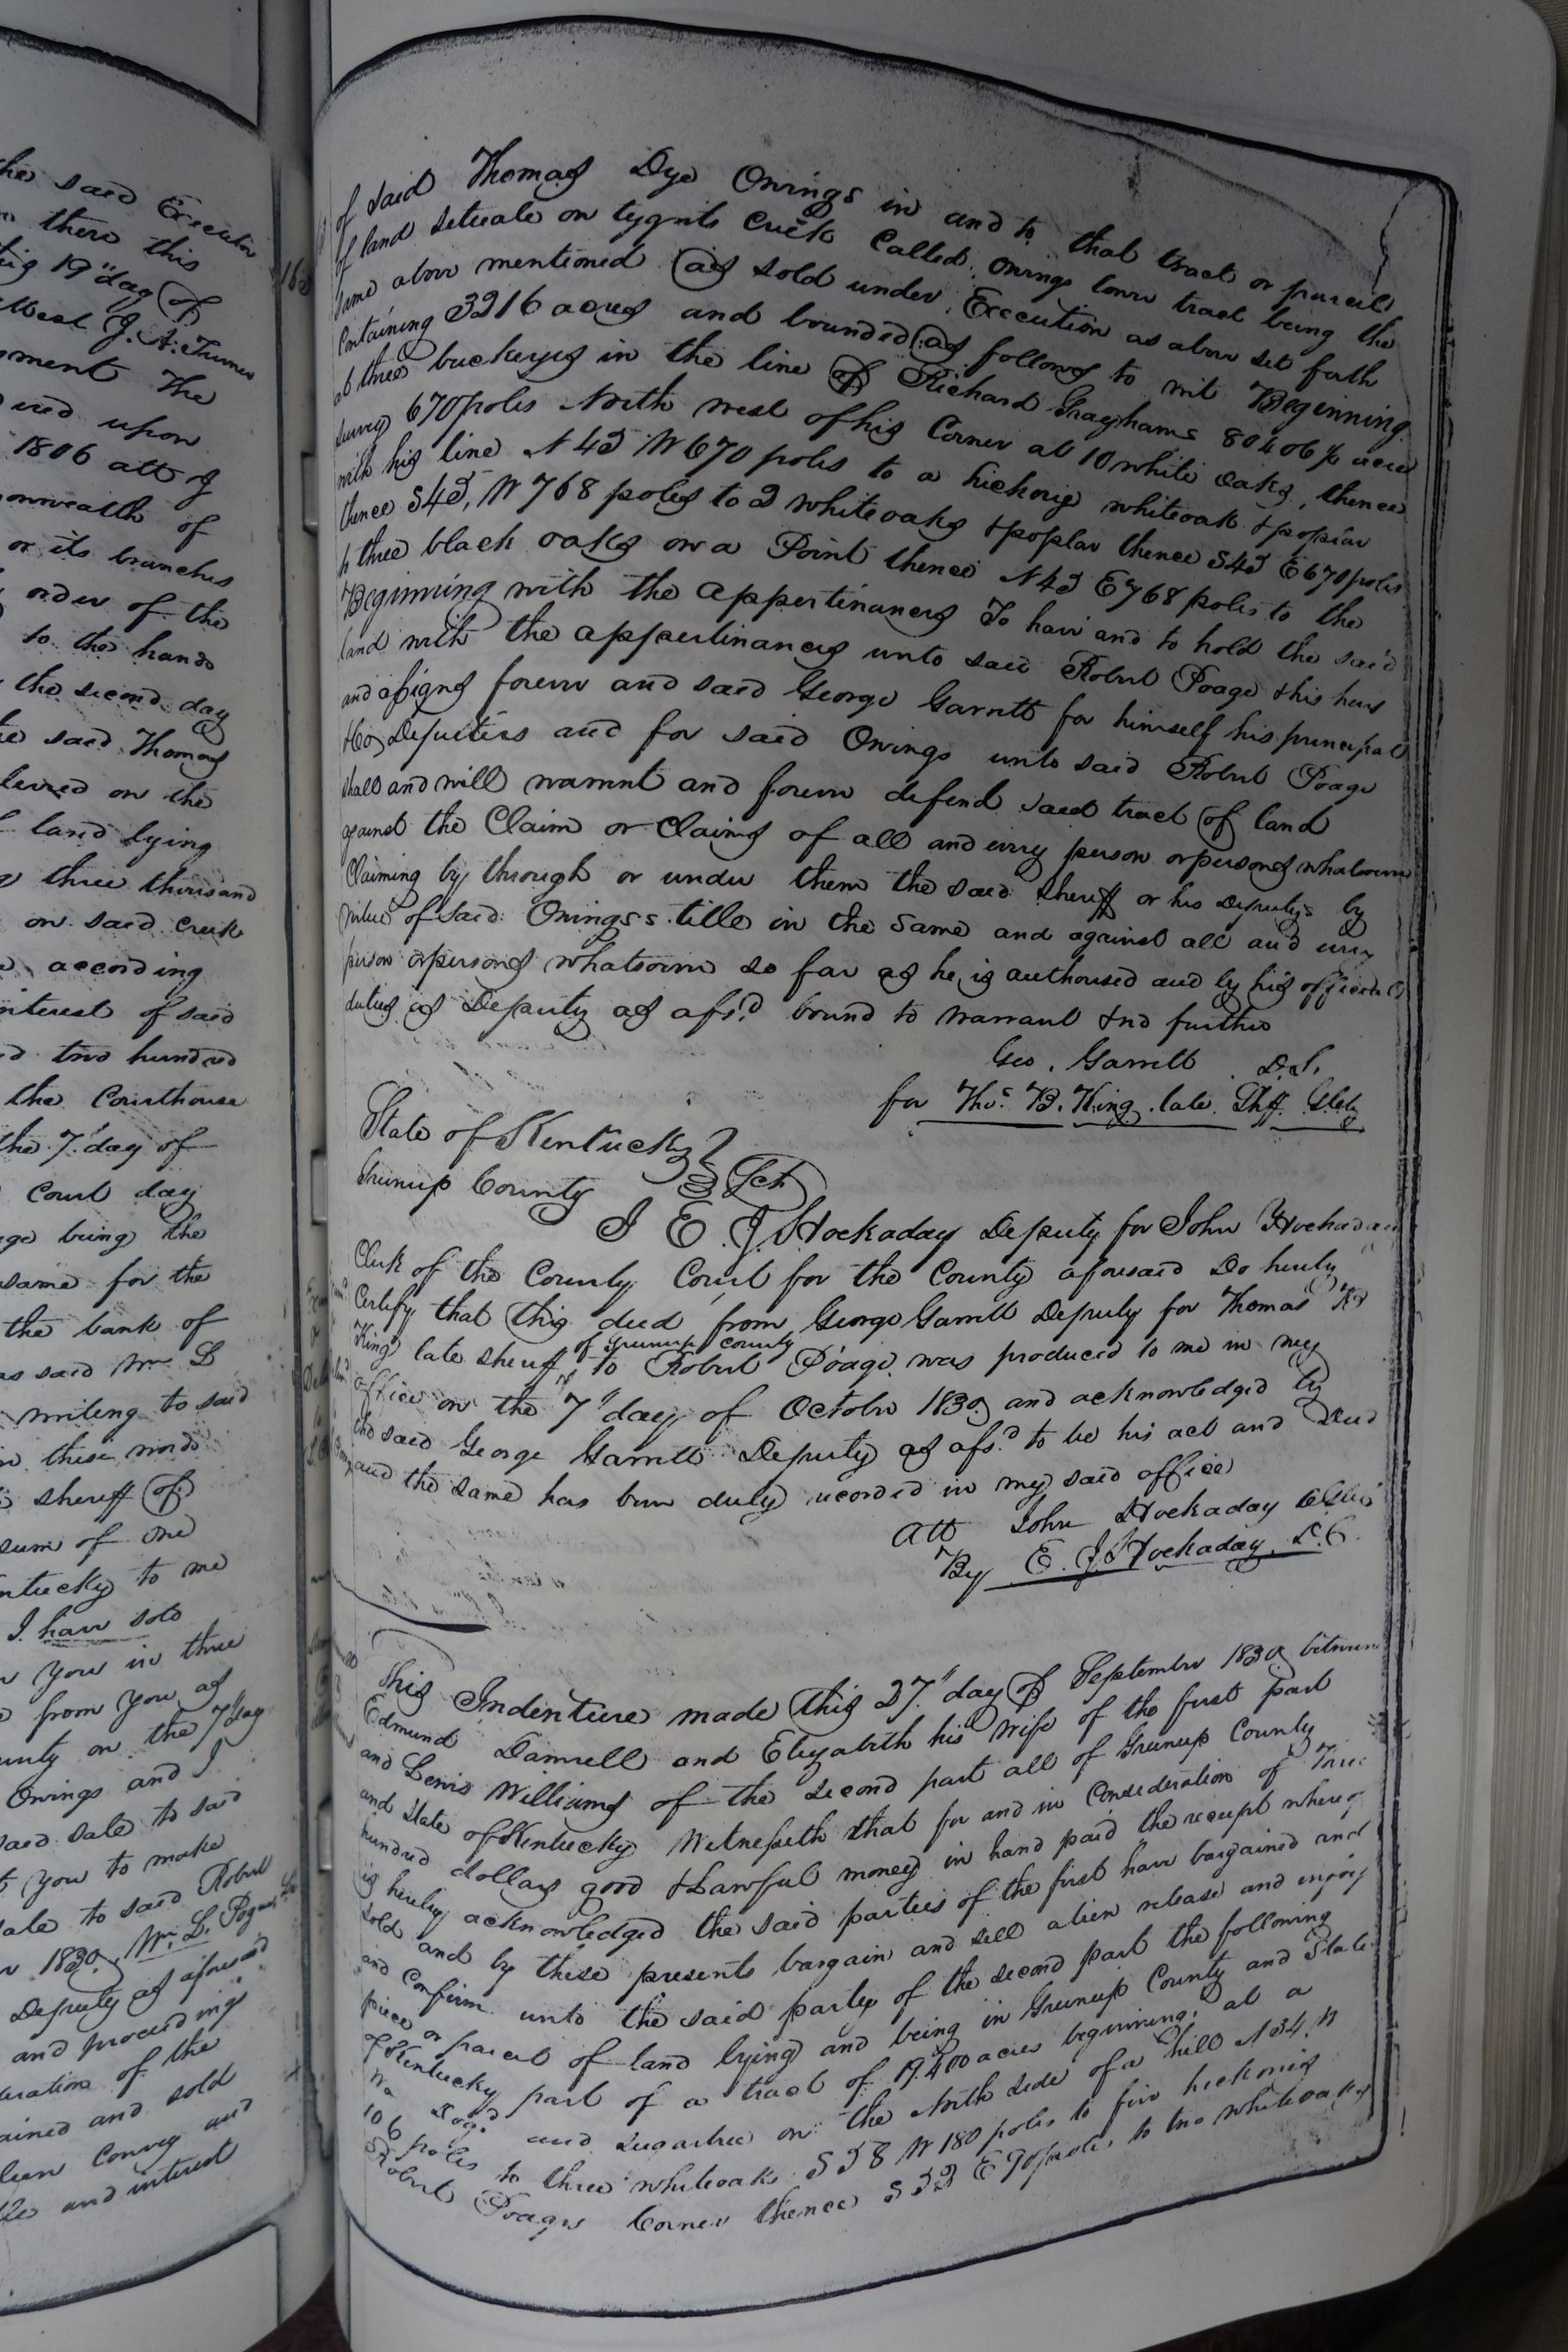 he said Execution
there this
19" day of
West J. A. Turner
ment The
ued upon
1806 att J
onwealth of
or its branches
order of the
to the hands
the second day
said Thomas
levied on the
land lying
three thousand
on said Creek
according
interest of said
two hundred
the Courthouse
the 7" day of
Court day
being the
same for the
the bank of
as said Wm L
writing to said
in these words
sheriff of
sum of one
ntucky to me
I have sold
you in three
from you as
unty on the 7" day
Owings and I
said sale to said
you to make
sale to said Robert
1830. Wm L. Pogue
Deputy as aforesaid
and proceedings
eration of the
ained and sold
lien Convey and
and interest
of said Thomas Dye Owings in and to that tract or parcel
of land situate on tygerts Creek Called Owings lower tract being the
same above mentioned as sold under Execution as above set forth
Containing 3216 acres and bounded as follows to wit Beginning
at three buckeyes in the line of Richard Grayhams 80406 ½ acre
survey 670 poles North west of his Corner at 10 white oaks, thence
with his line N 45 W 670 poles to a hickory whiteoak & poplar
thence S45, W 768 poles to 2 whiteoaks & poplar thence S45 E 670 poles
to three black oaks on a Point thence N 45 E 768 poles to the
Beginning with the appertinances To have and to hold the said
land with the appertinances unto said Robert Poage & his heirs
and assigns forever and said George Garrett for himself his principal
& Co Deputies and for said Owings unto said Robert Poage
shall and will warrant and forever defend said tract of land
against the Claim or Claims of all and every person or persons whatsoever
Claiming by through or under them the said Sheriff or his Deputys by
virtue of said Owings's title in the same and against all and every
person or persons whatsoever so far as he is authorised and by his official
duties as Deputy as afsd bound to warrant & no further
Geo. Garrett D.S.
for Thos. B. King late Shff. G
State of Kentucky
Greenup County Sct
I E. J. Hockaday Deputy for John Hockaday
Clerk of the County Court for the County aforesaid Do hereby
Certify that this deed from George Garrett Deputy for Thomas B
King late sheriff of Greenup County to Robert Poage was produced to me in my
office on the 7" day of October 1830 and acknowledged by
the said George Garrett Deputy as afsd to be his act and Deed
and the same has been duly recorded in my said office
Att John Hockaday Clk
By E. J. Hockaday. D.C.
This Indenture made this 27" day of September 1830 between
Edmund Damrell and Elizabeth his Wife of the first part
and Lewis Williams of the second part all of Greenup County
and State of Kentucky Witnesseth that for and in Consideration of
hundred dollars good & lawful money in hand paid the receipt whereof
is hereby acknowledged the said parties of the first have bargained and
sold and by these presents bargain and sell alien release and
and Confirm unto the said party of the second part the following
piece or parcel of land lying and being in Greenup County and State
of Kentucky part of a tract of 19.400 acres beginning at a
Dogd and sugartree on the North side of a hill N 34, W
106 poles to three whiteoaks S 58 W 180 poles to five hickories
Robert Poages Corner thence S 53 E 90 poles to two whiteoaks